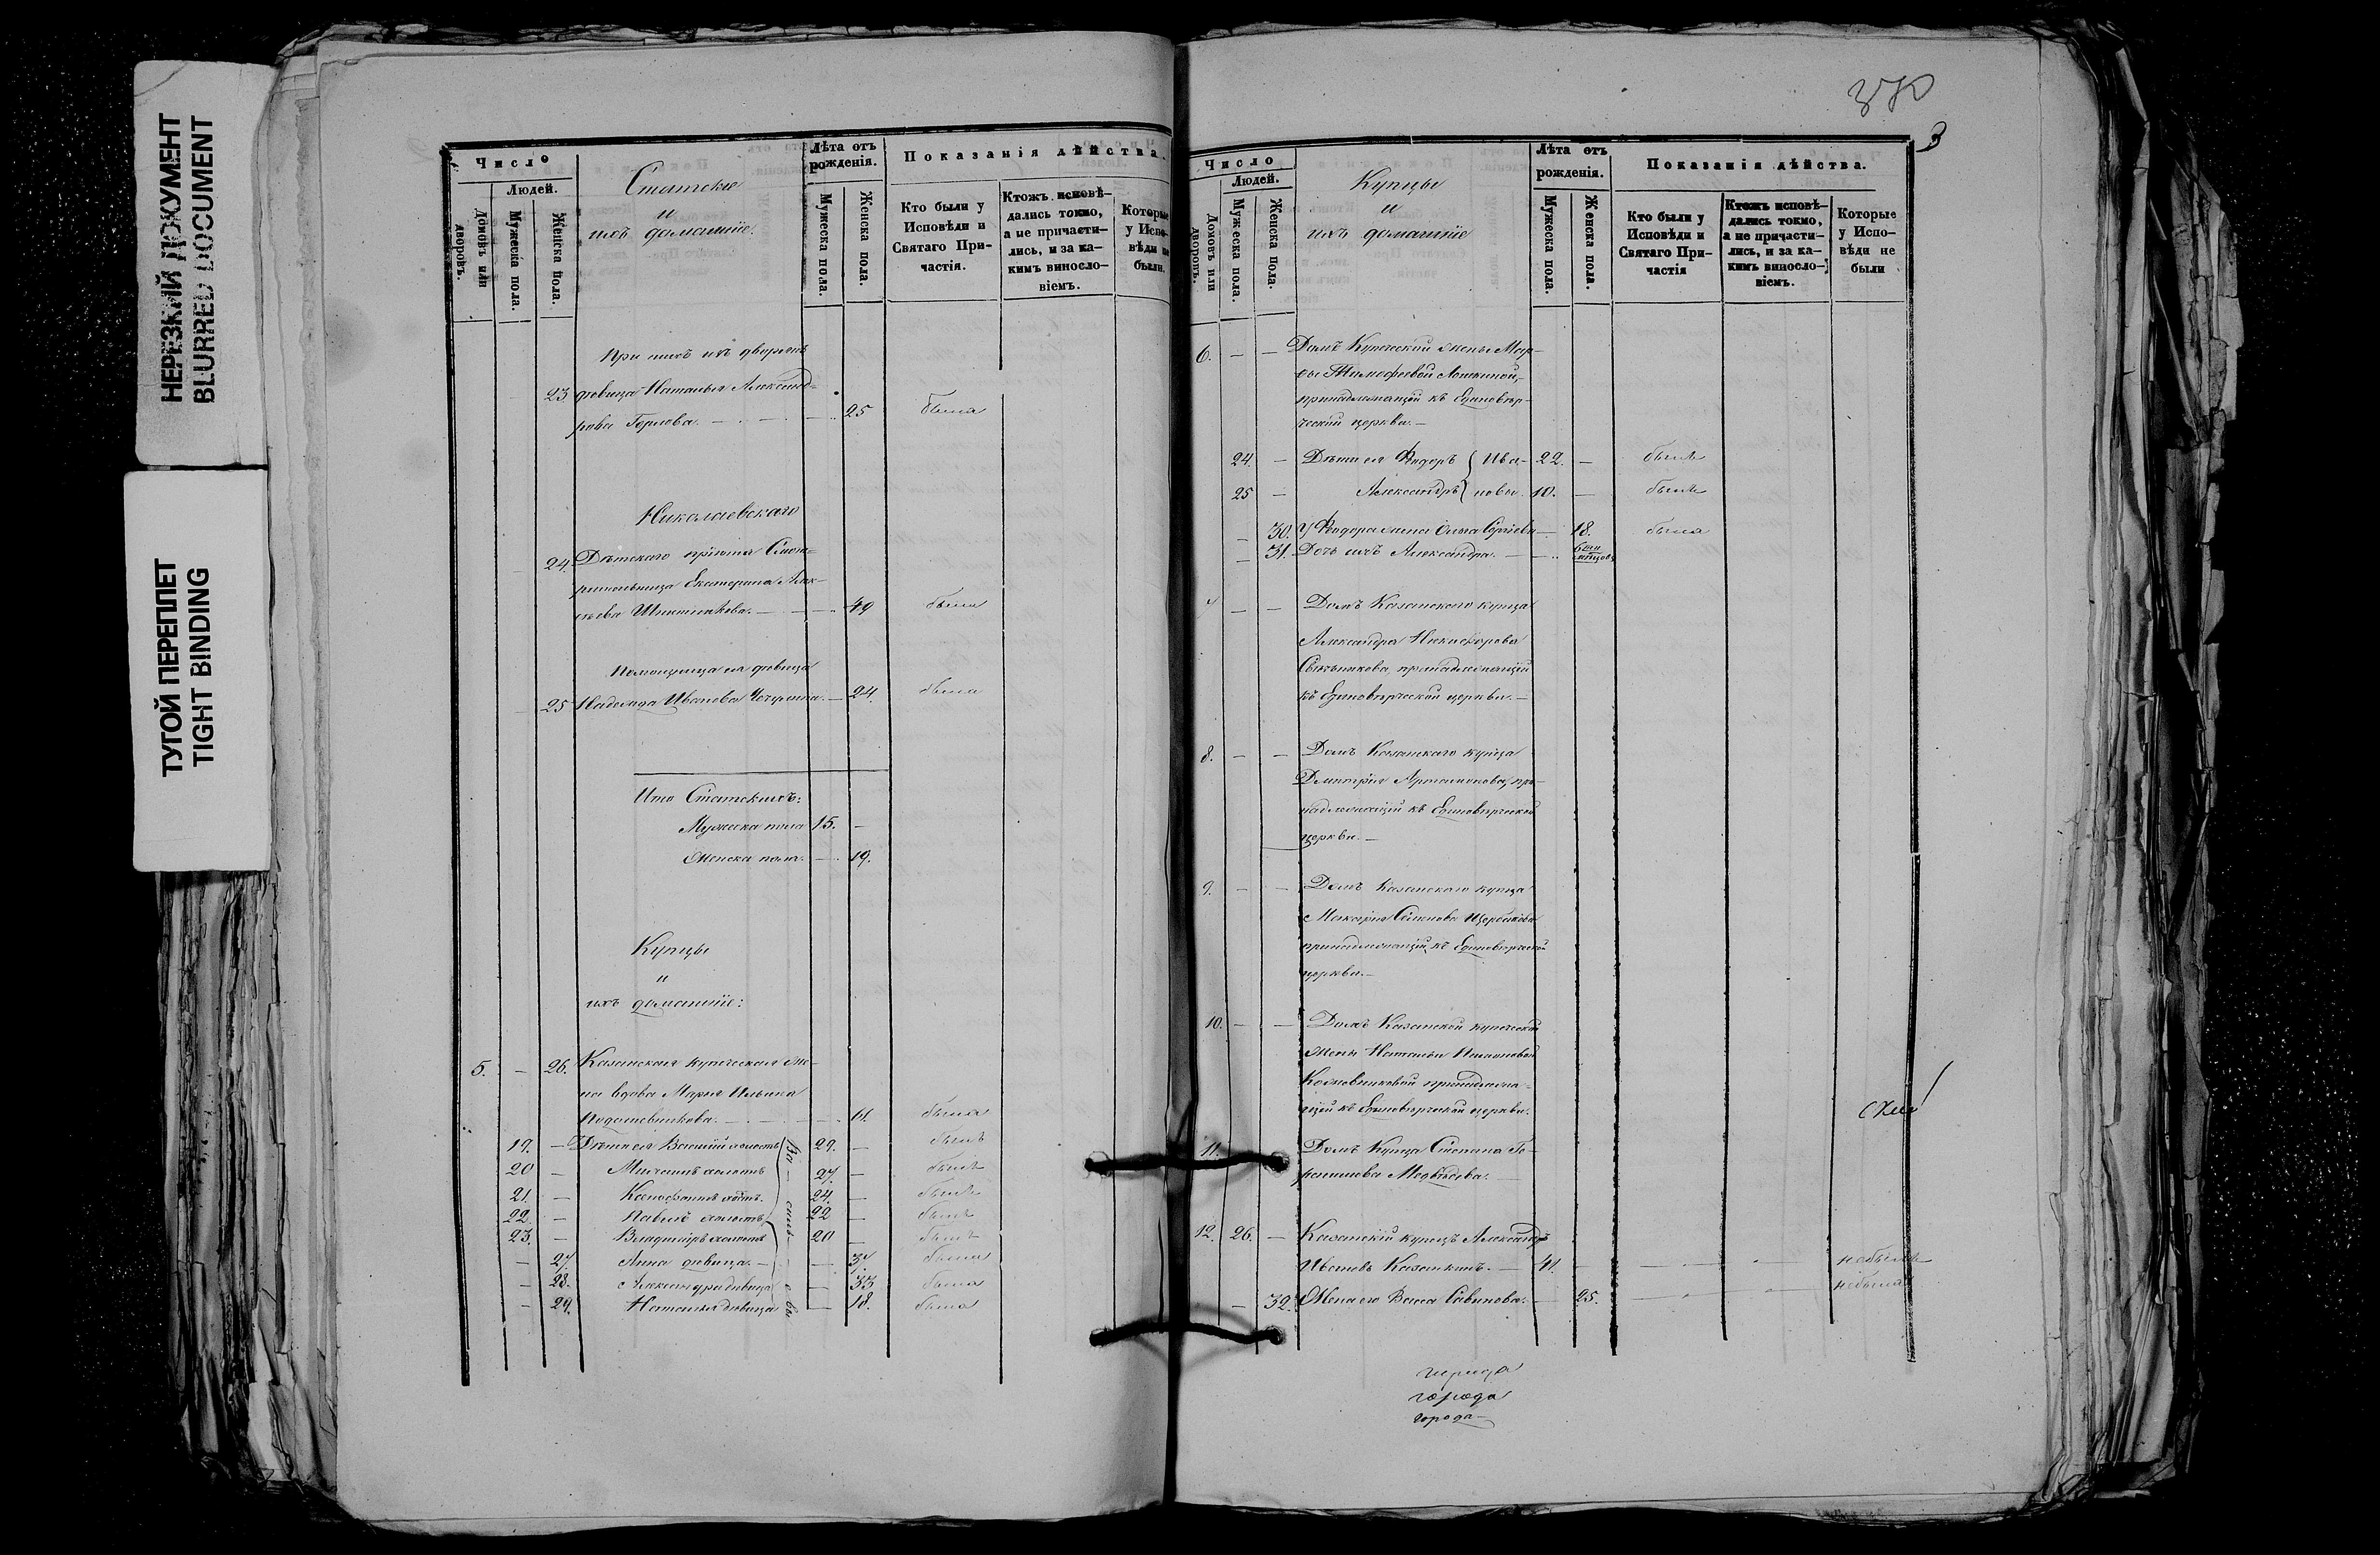 НЕРЕЗКИЙ ДОКУМЕНТ
BLURRED DOCUMENT
ТУГОЙ ПЕРЕПЛЕТ
TIGHT BINDING
Число
Людей.
Домовъ или дворовъ.
Мужеска пола.
Женска пола.
Статскіе
и
ихъ домашніе.
Лѣта отъ рожденія.
Мужеска пола.
Женска пола.
Показанія дѣйства.
Кто были у Исповѣди и Святаго Причастія.
Ктожъ исповѣ-
дались токмо,
а не причасти-
лись, и за ка-
кимъ винослo-
віемъ.
Которые
у Испо-
вѣди не
были.
При нихъ ихъ
23. дѣвица Наталья Александ-
рова Горлова. 25 была
Николаевскаго
24. Дѣтскаго пріюта Смот-
рительница Екатерина Алек-
сѣева 49 была
Помощница ея дѣвица
25 Надежда Иванова 24. была
Итого Статскихъ:
Мужеска пола 15. —
Женска пола. — 19.
Купцы
и
ихъ домашніе:
5. — 26. Казанская купеческая же-
на вдова Марья Ильина
Подошевникова. 61. была
19. — Дѣти ея Василій холостъ 29. — былъ
20 — Михаилъ холостъ 27. — былъ
21. — Ксенофонтъ холостъ. 24. — былъ
22. — Павелъ холостъ 22 — былъ
23. — Владиміръ холостъ 20 — былъ
— 27. Анна дѣвица. — 37. была
— 28. Александра дѣвица — 33 была
— 29. Наталья дѣвица — 18. была
Ва-силь-евы
370
3
Число
Людей.
Домовъ или дворовъ.
Мужеска пола.
Женска пола.
Купцы
и
ихъ домашніе
Лѣта отъ рожденія.
Мужеска пола.
Женска пола.
Показанія дѣйства.
Кто были у
Исповѣди и
Святаго При-
частія
Ктожъ исповѣ-
дались токмо,
а не причасти-
лись, и за ка-
кимъ винослo-
віемъ.
Которые
у Испо-
вѣди не
были
6. — — Домъ Купеческой жены Мар-
ѳы Тимофеевой
принадлежащей къ Единовѣр-
ческой церкви. —
24. — Дѣти ея Ѳедоръ Ива- 22. — былъ
25 — Александръ новы. 10. — былъ
— 30. У Ѳедора жена Ольга Сергѣева — 18. была
— 31. Дочь ихъ Александра. — 6ти мѣсяцовъ
7 — — Домъ Казанскаго купца
Александра Никифорова
принадлежащій
къ Единовѣрческой церкви. —
8. — — Домъ Казанскаго купца
Дмитрія Артамонова, при-
надлежащій къ Единовѣрческой
церкви. —
9. — — Домъ Казанскаго купца
Макарія Семенова Щербакова
принадлежащій къ Единовѣрческой
церкви. —
10. — — Домъ Казанской купеческой
жены Натальи
принадлежа-
щей къ Единовѣрческой церкви.
11. Домъ Купца Степана Ге-
расимова Медвѣдева. —
12. 26. — Казанскій купецъ Александръ
Ивановъ 41. — небылъ
— 32. Жена его Васса Савинова. — 25. небыла
города
города
города —